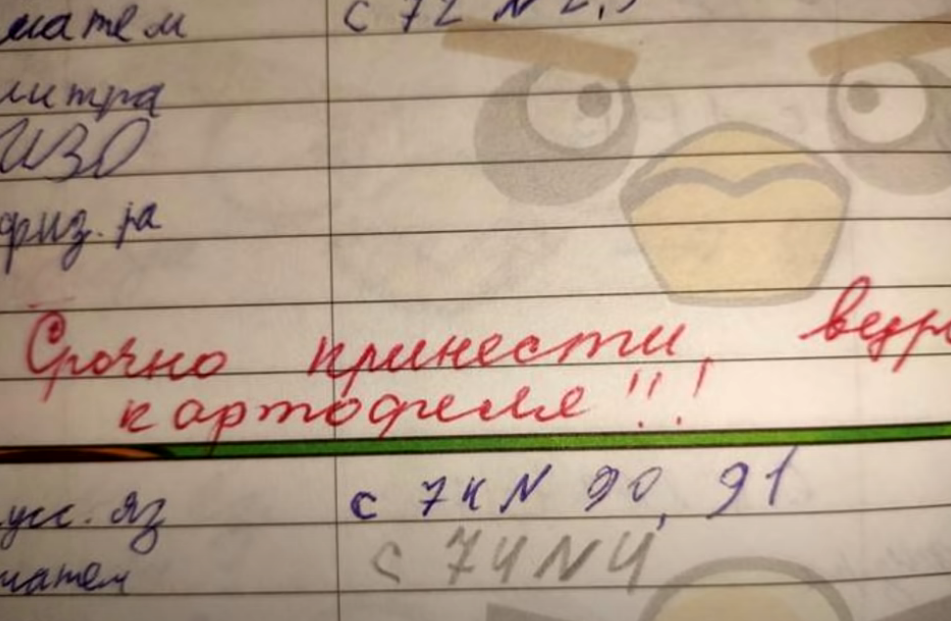 матем с 72 N 2,
литра
ИЗО
физ-ра
Срочно принести ведр
картофеля!!!
усс. яз с 74 N 90, 91
матем с 74 N 4